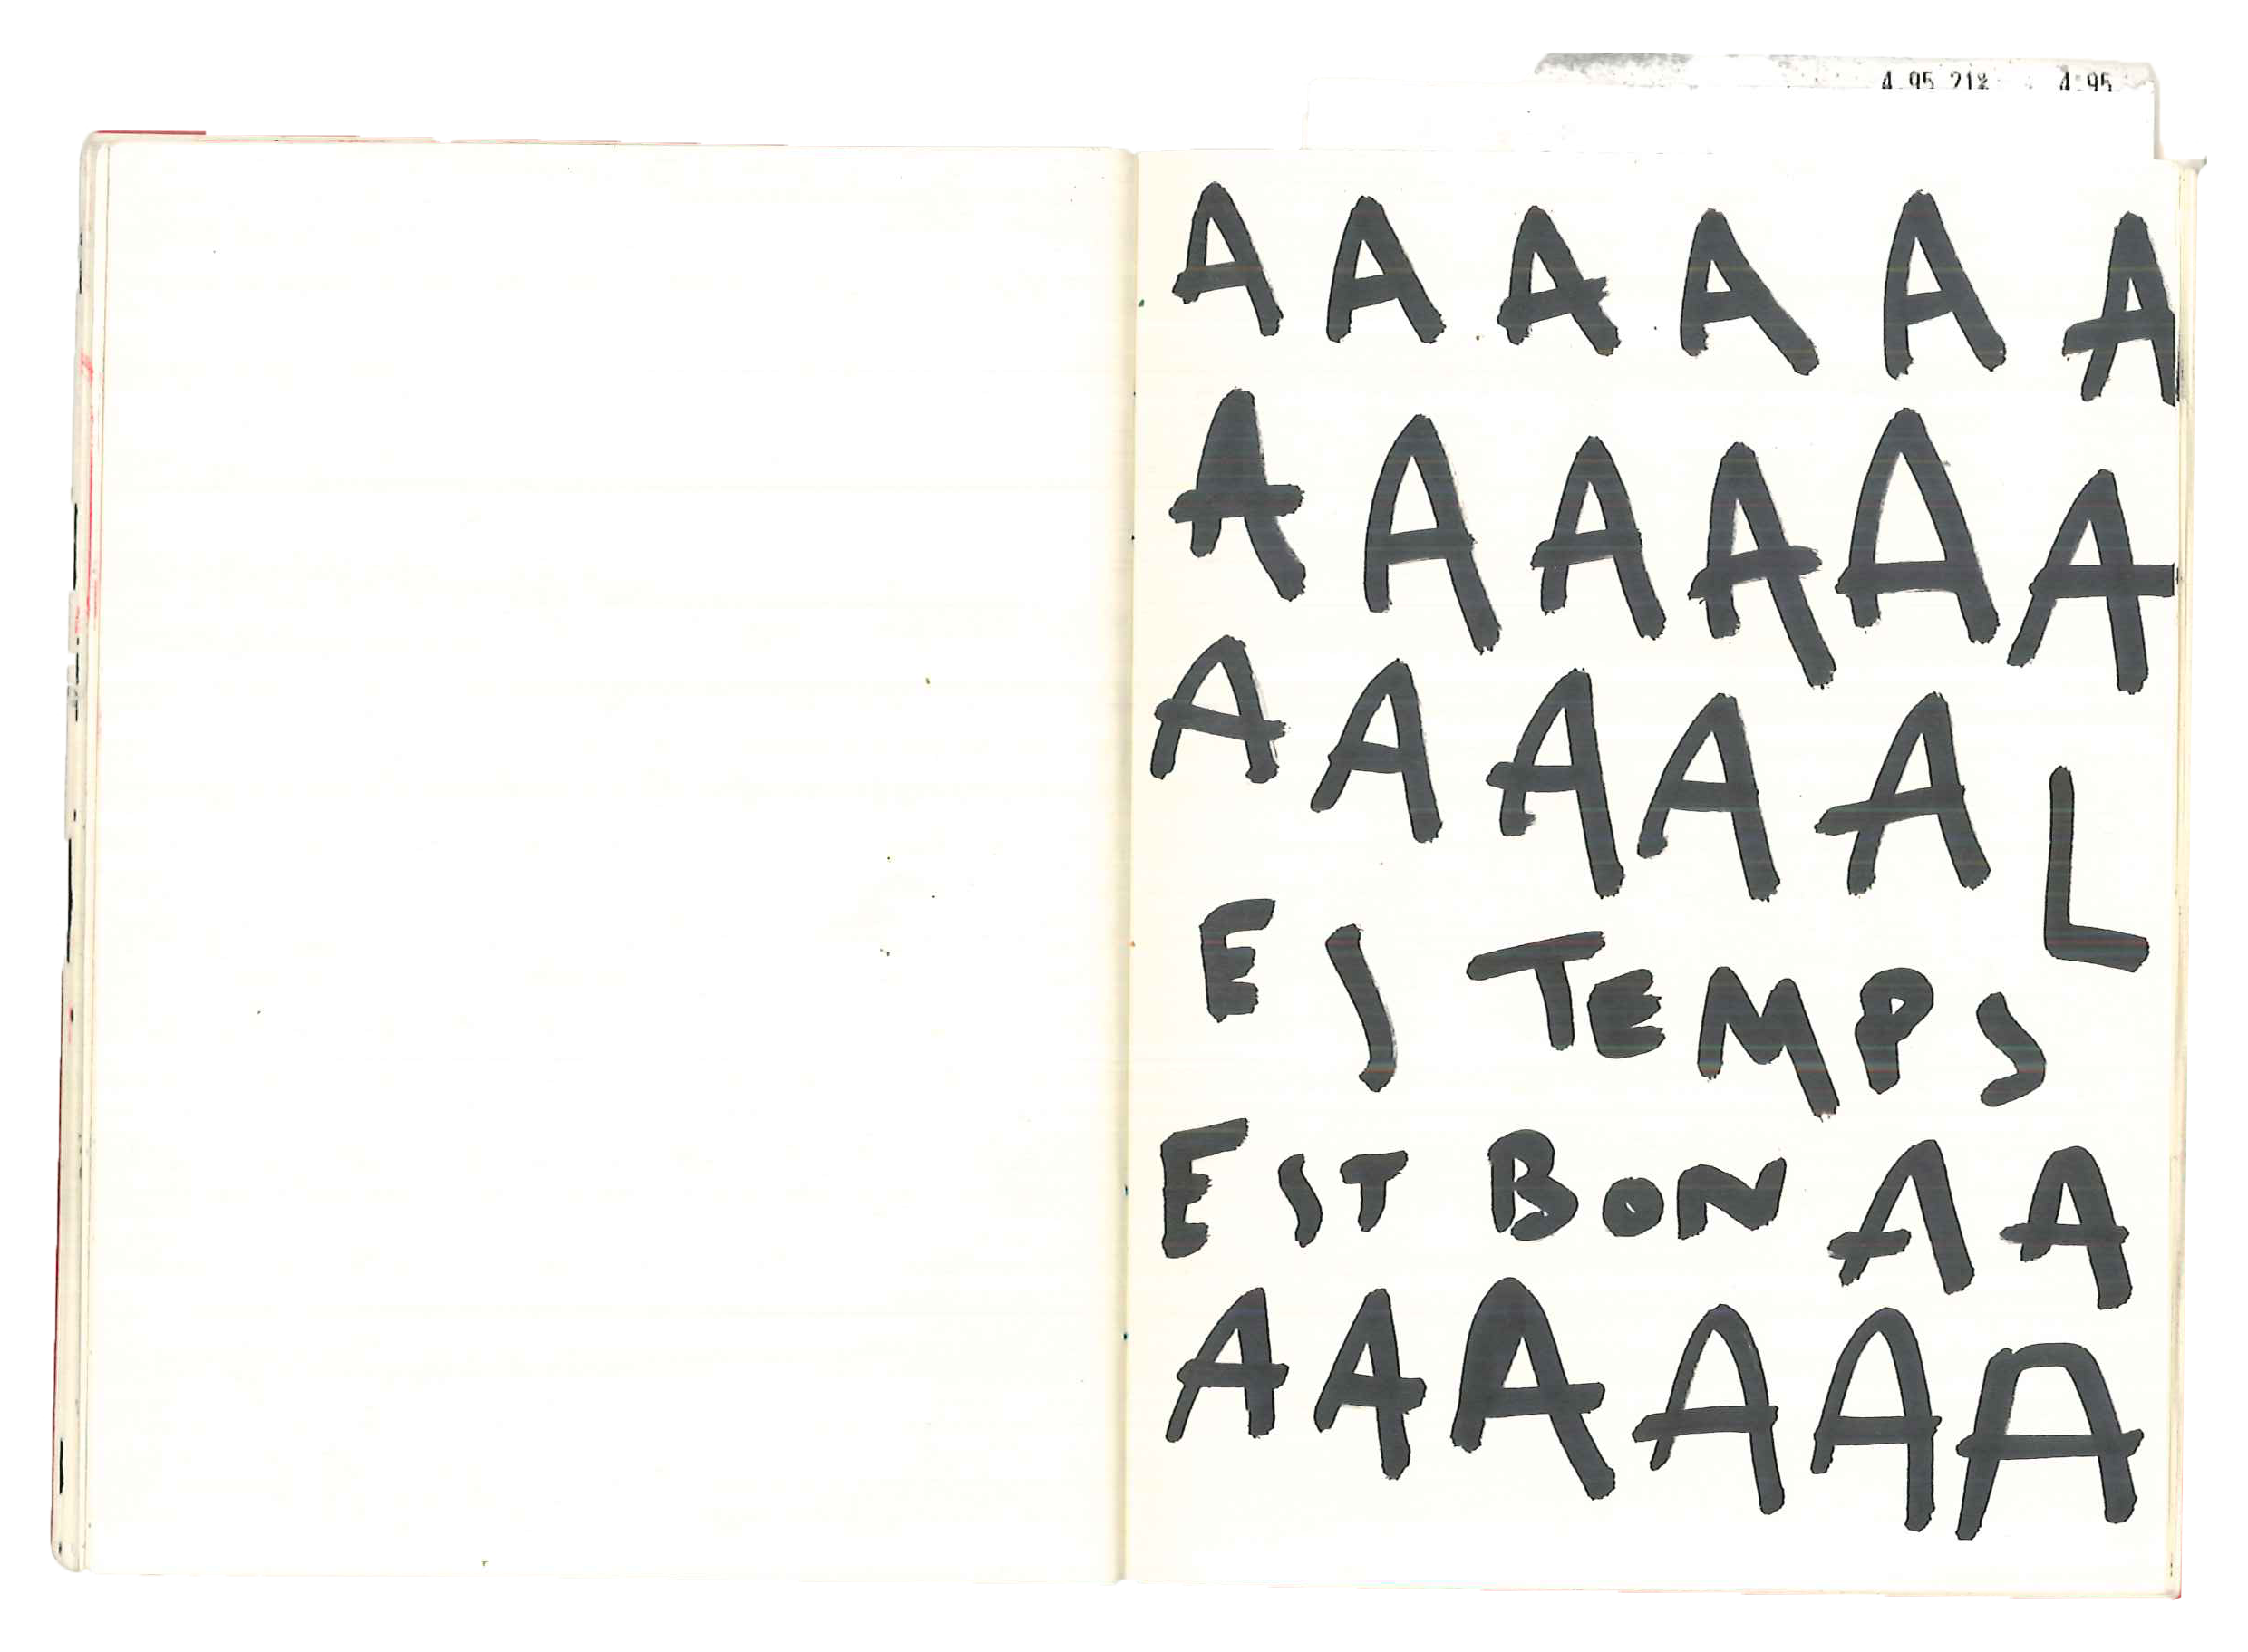 4.95 21% 4.95
A A A A A A
A A A A A A
A A A A A L
ES TEMPS
EST BON A A
A A A A A A